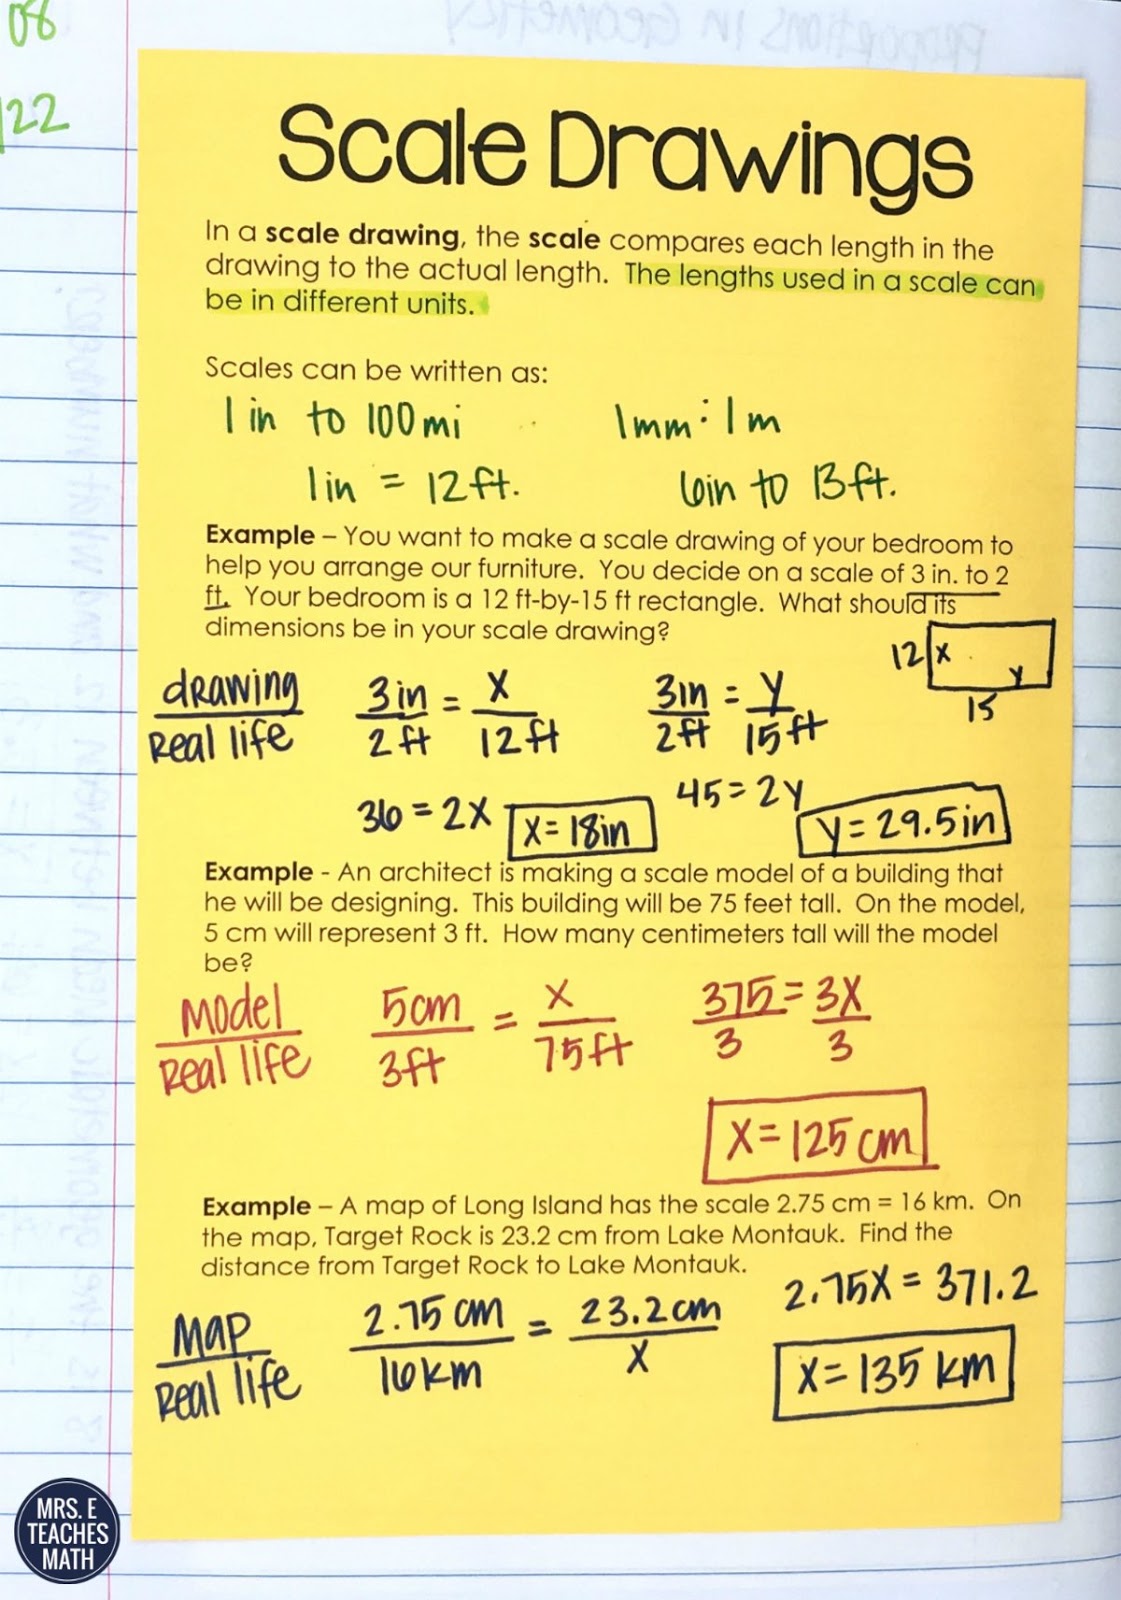 08
/22
PROPORTIONS IN GEOMETRY
Scale Drawings
In a scale drawing, the scale compares each length in the
drawing to the actual length. The lengths used in a scale can
be in different units.
Scales can be written as:
1 in to 100 mi
1mm : 1 m
1 in = 12 ft.
6in to 13 ft.
Example – You want to make a scale drawing of your bedroom to
help you arrange our furniture. You decide on a scale of 3 in. to 2
ft. Your bedroom is a 12 ft-by-15 ft rectangle. What should its
dimensions be in your scale drawing?
12 x
y
15
drawing / Real life
3in / 2ft = x / 12ft
3in / 2ft = y / 15ft
36 = 2x
x = 18in
45 = 2y
y = 29.5in
Example - An architect is making a scale model of a building that
he will be designing. This building will be 75 feet tall. On the model,
5 cm will represent 3 ft. How many centimeters tall will the model
be?
Model / Real life
5cm / 3ft = x / 75ft
375 / 3 = 3x / 3
x = 125 cm
Example – A map of Long Island has the scale 2.75 cm = 16 km. On
the map, Target Rock is 23.2 cm from Lake Montauk. Find the
distance from Target Rock to Lake Montauk.
Map / Real life
2.75 cm / 16 km = 23.2cm / x
2.75x = 371.2
x = 135 km
MRS. E
TEACHES
MATH